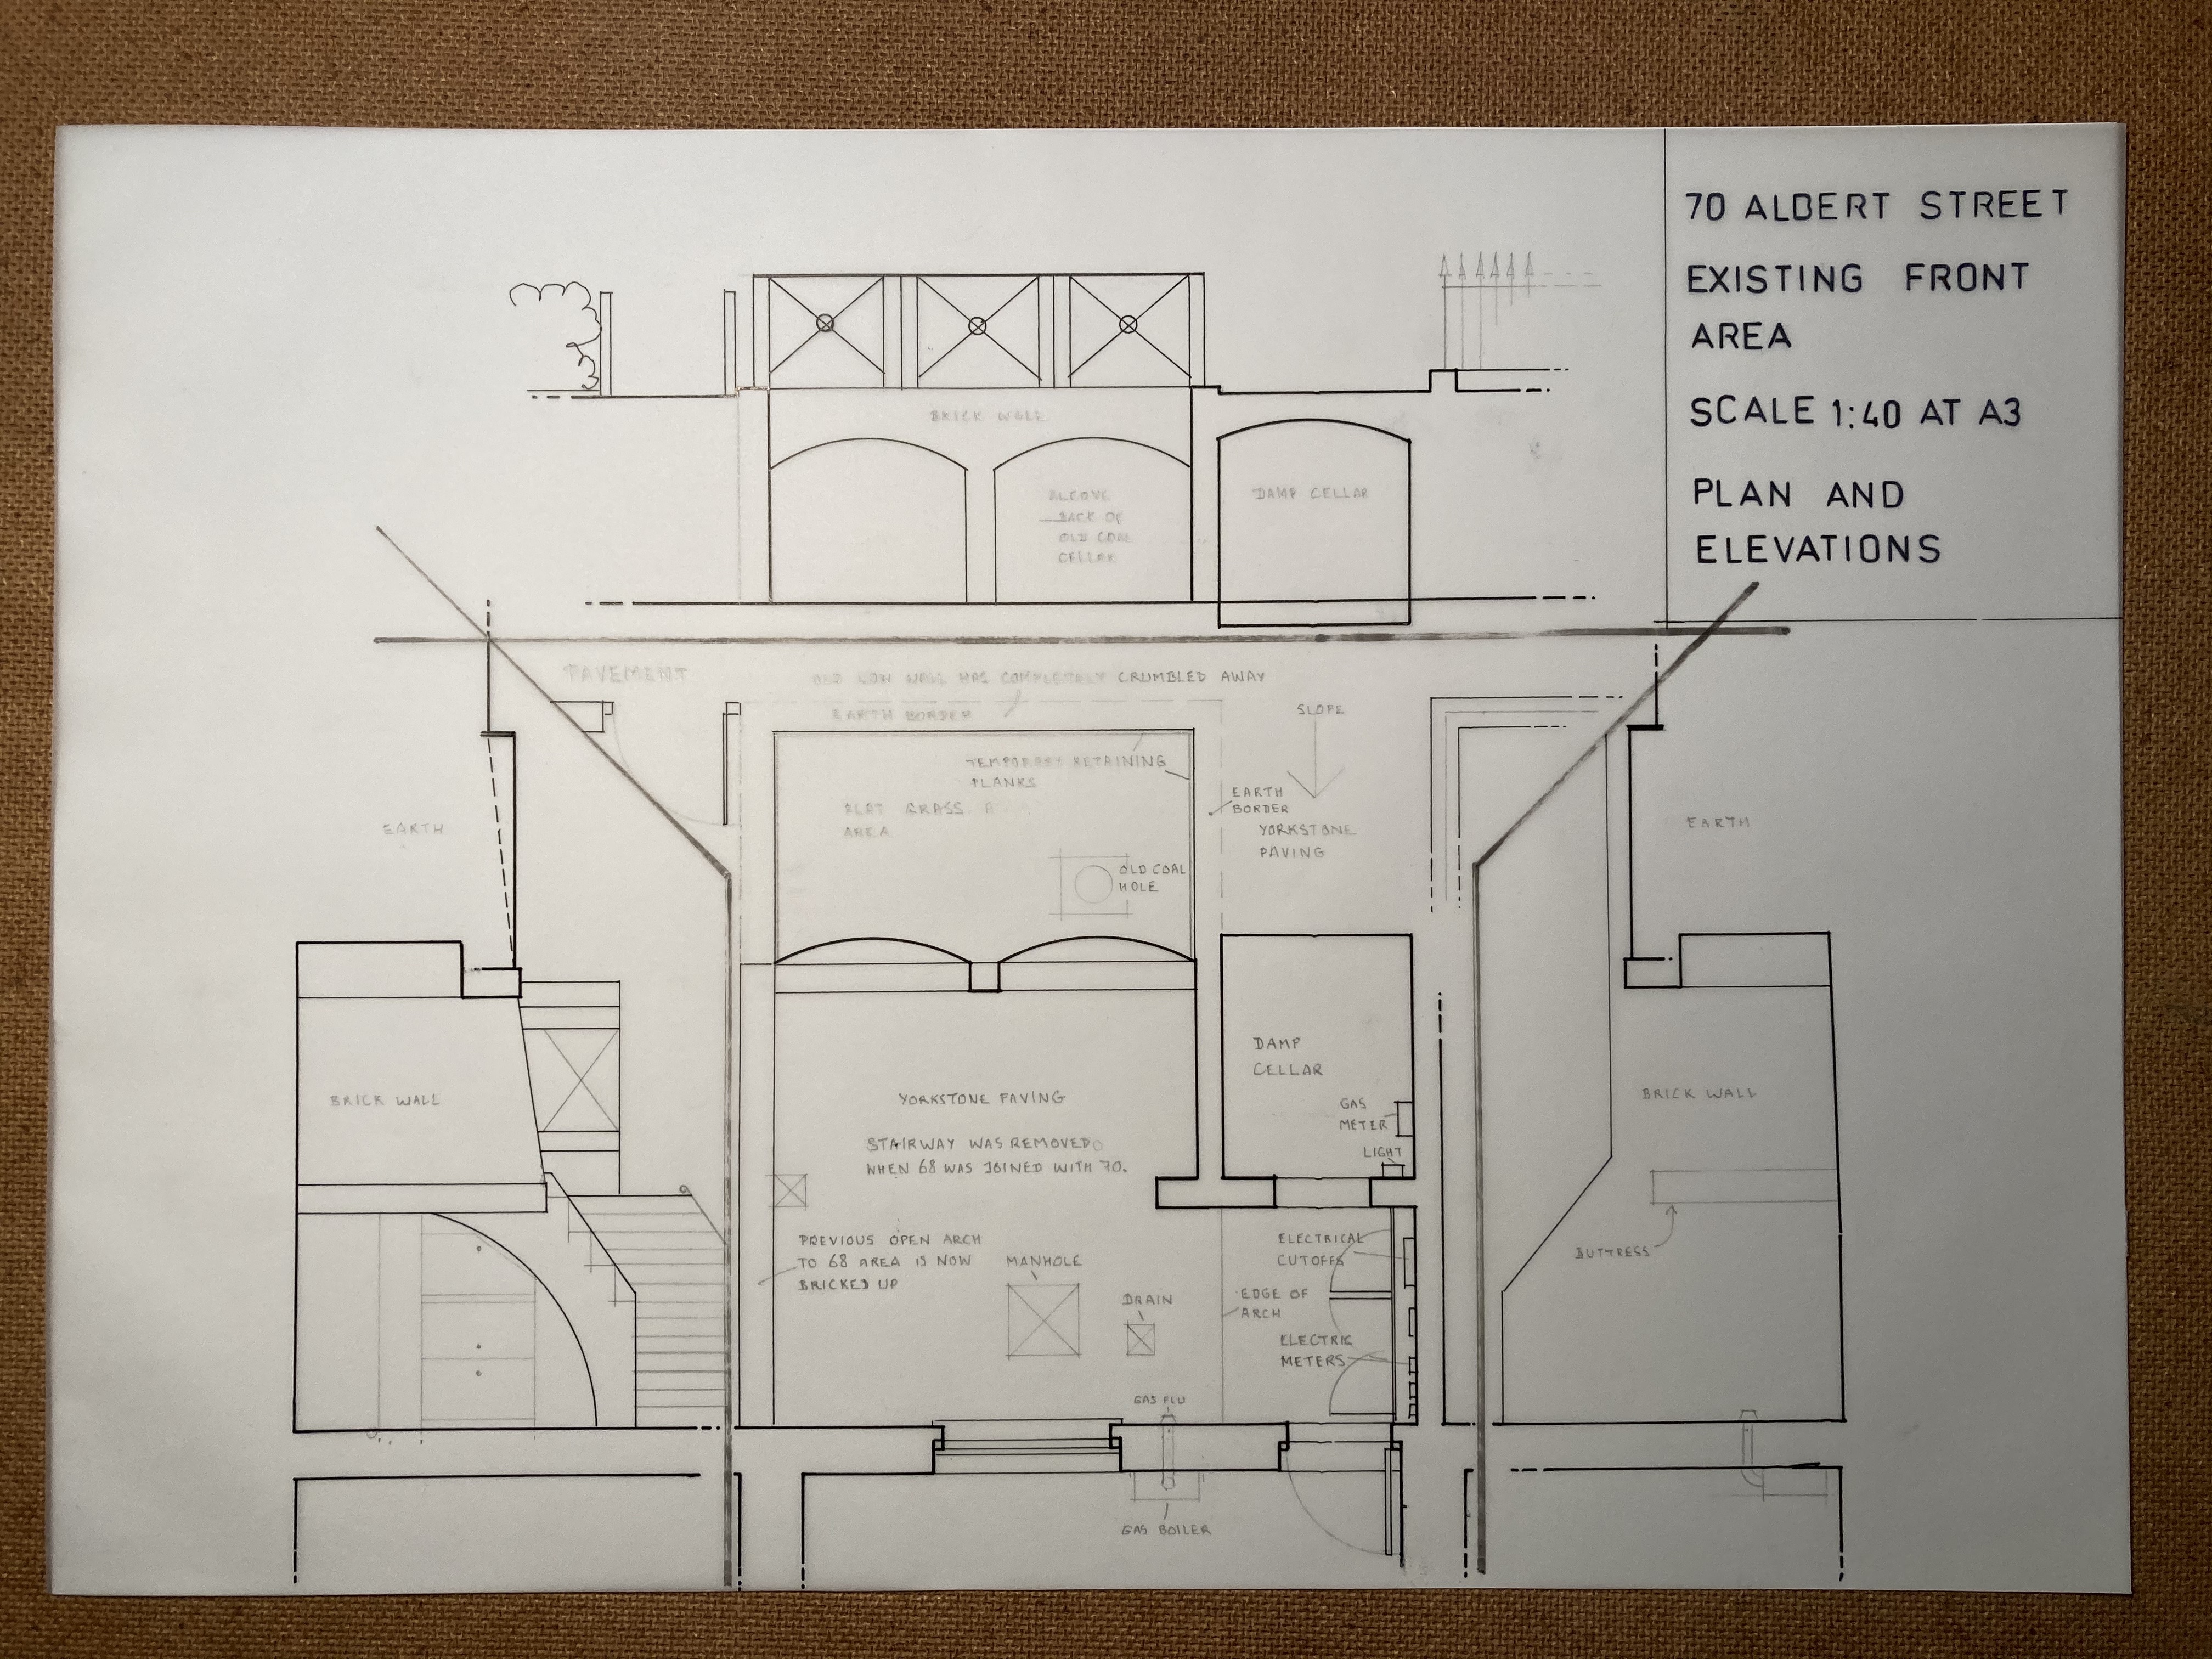 70 ALBERT STREET
EXISTING FRONT
AREA
SCALE 1:40 AT A3
PLAN AND
ELEVATIONS
BRICK WALL
ALCOVE
BACK OF
OLD COAL
CELLAR
DAMP CELLAR
PAVEMENT
OLD LOW WALL HAS COMPLETELY CRUMBLED AWAY
EARTH BORDER
SLOPE
TEMPORARY RETAINING
PLANKS
FLAT GRASS
AREA
EARTH
BORDER
YORKSTONE
PAVING
OLD COAL
HOLE
EARTH
EARTH
DAMP
CELLAR
BRICK WALL
YORKSTONE PAVING
STAIRWAY WAS REMOVED
WHEN 68 WAS JOINED WITH 70.
GAS
METER
LIGHT
BRICK WALL
PREVIOUS OPEN ARCH
TO 68 AREA IS NOW
BRICKED UP
MANHOLE
DRAIN
EDGE OF
ARCH
ELECTRICAL
CUTOFFS
ELECTRIC
METERS
BUTTRESS
GAS FLU
GAS BOILER